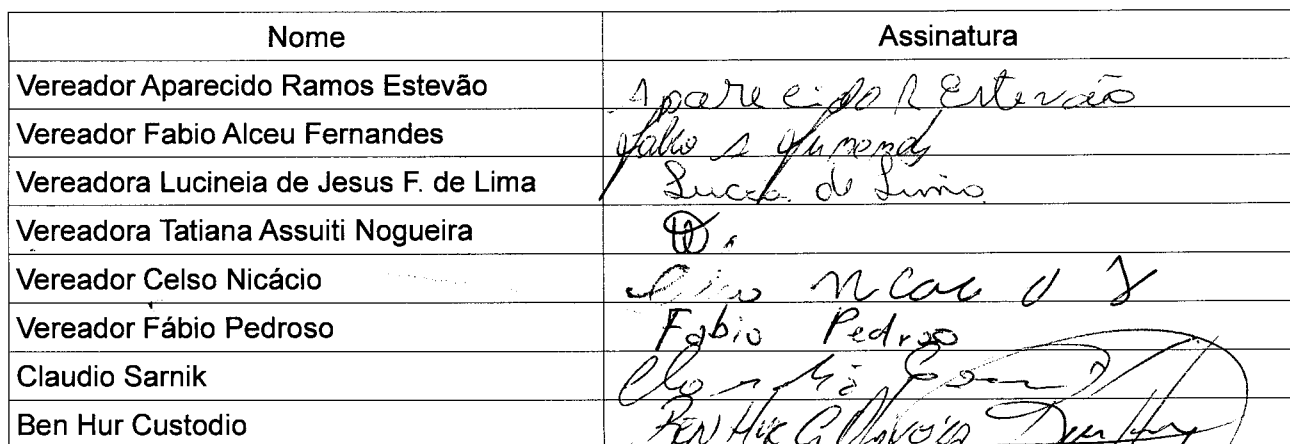 Nome Assinatura
Vereador Aparecido Ramos Estevão Aparecido R Estevão
Vereador Fabio Alceu Fernandes Fabio A
Vereadora Lucineia de Jesus F. de Lima Lucia de Lima
Vereadora Tatiana Assuiti Nogueira
Vereador Celso Nicácio
Vereador Fábio Pedroso Fabio Pedroso
Claudio Sarnik Claudio
Ben Hur Custodio BEN HUR C Oliveira